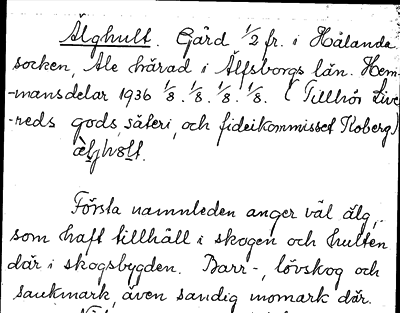 Älghult. Gård 1/2 fr. i Hålanda
socken, Ale härad i Älfsborgs län. Hem-
-mansdelar 1936 1/8. 1/8. 1/8. 1/8. (Tillhör Live
-reds gods, säteri, och fideikommisset Koberg)
Första namnleden anger väl älg,
som haft tillhåll i skogen och hulten
där i skogsbygden. Barr-, lövskog och
sankmark, även sandig momark där.